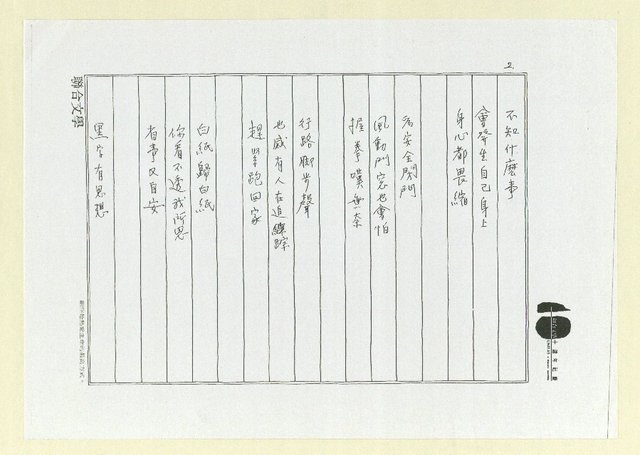 2
不知什麼事
會發生自己身上
身心都畏縮
為安全關門
風動門窓也會怕
握拳嘆無奈
行路腳步聲
也感有人在追蹤
趕緊跑回家
白紙歸白紙
你看不透我所思
有事又自安
黑字有思想
聯合文學